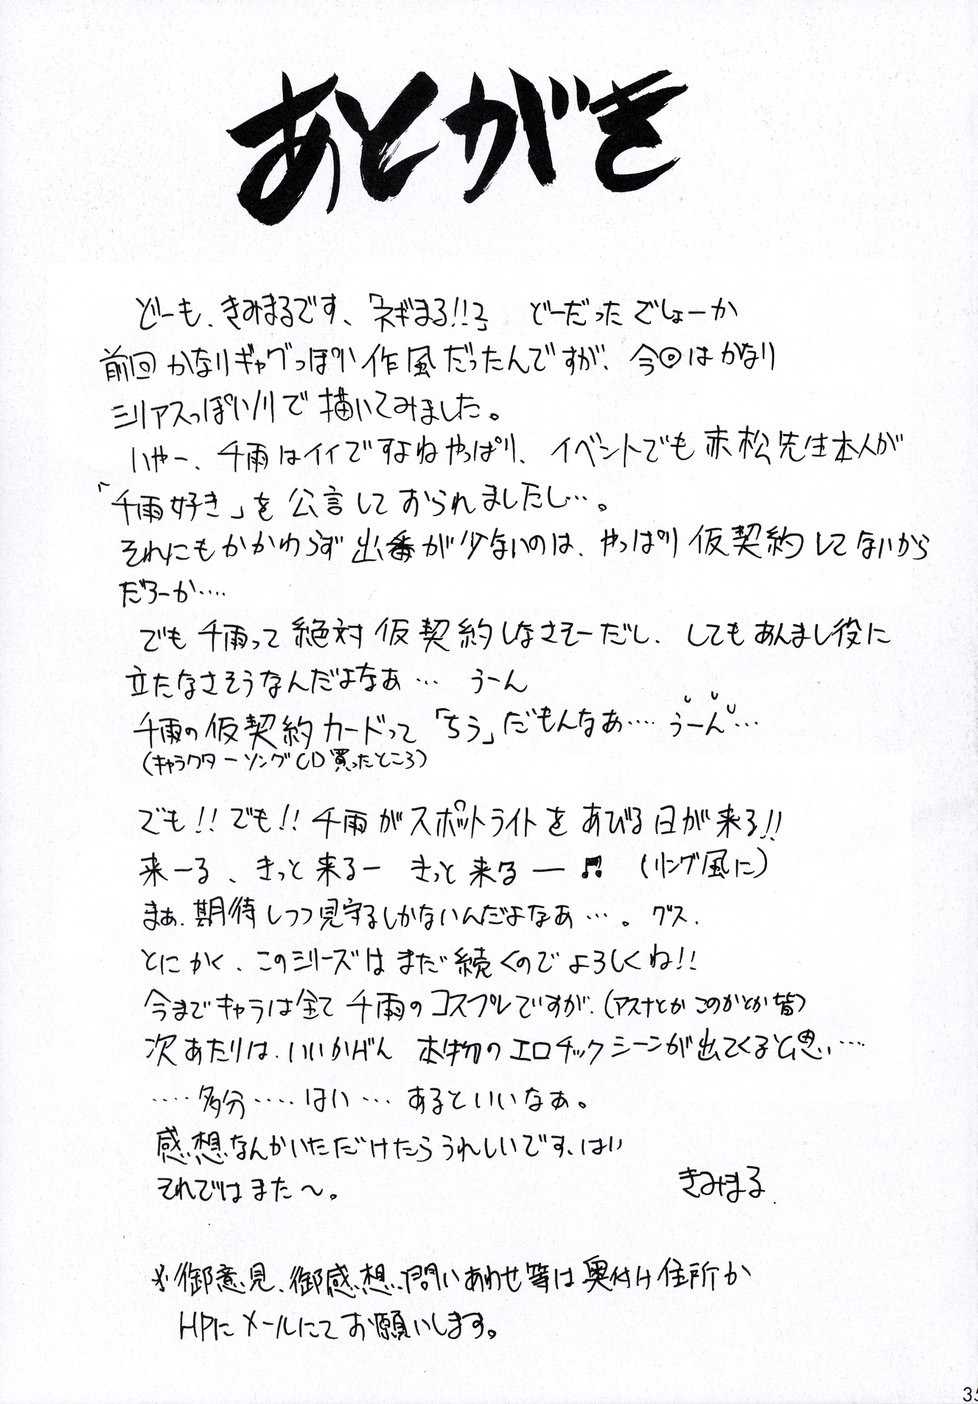 あとがき
どーも、きみまるです、「ネギまる!!2」どーだったでしょーか
前回かなりギャグっぽい作風だったんですが、今回はかなり
シリアスっぽいノリで描いてみました。
いやー、千雨はイイですよねやっぱり、イベントでも赤松先生本人が
「千雨好き」を公言しておられましたし…。
それにもかかわらず出番が少ないのは、やっぱり仮契約してないから
だろーか….
でも千雨って絶対仮契約しなさそーだし、してもあんまし役に
立たなさそうなんだよなあ… うーん
千雨の仮契約カードって「ちう」だもんなあ…. うーん…
(キャラクターソングCD買ったところ)
でも!!でも!!千雨がスポットライトをあびる日が来る!!
来ーる、きっと来るー きっと来るー♬ (リング風に)
まぁ、期待しつつ見守るしかないんだよなあ…。グス.
とにかく、このシリーズはまだ続くのでよろしくね!!
今までキャラは全て千雨のコスプレですが、(アスナとかこのかとか皆)
次あたりは、いいかげん本物のエロチックシーンが出てくると思い…
….多分….はい…あるといいなぁ。
感想なんかいただけたらうれしいです、はい
それではまた〜。 きみまる
※御意見、御感想、問いあわせ等は奥付け住所か
HPにメールにてお願いします。
35